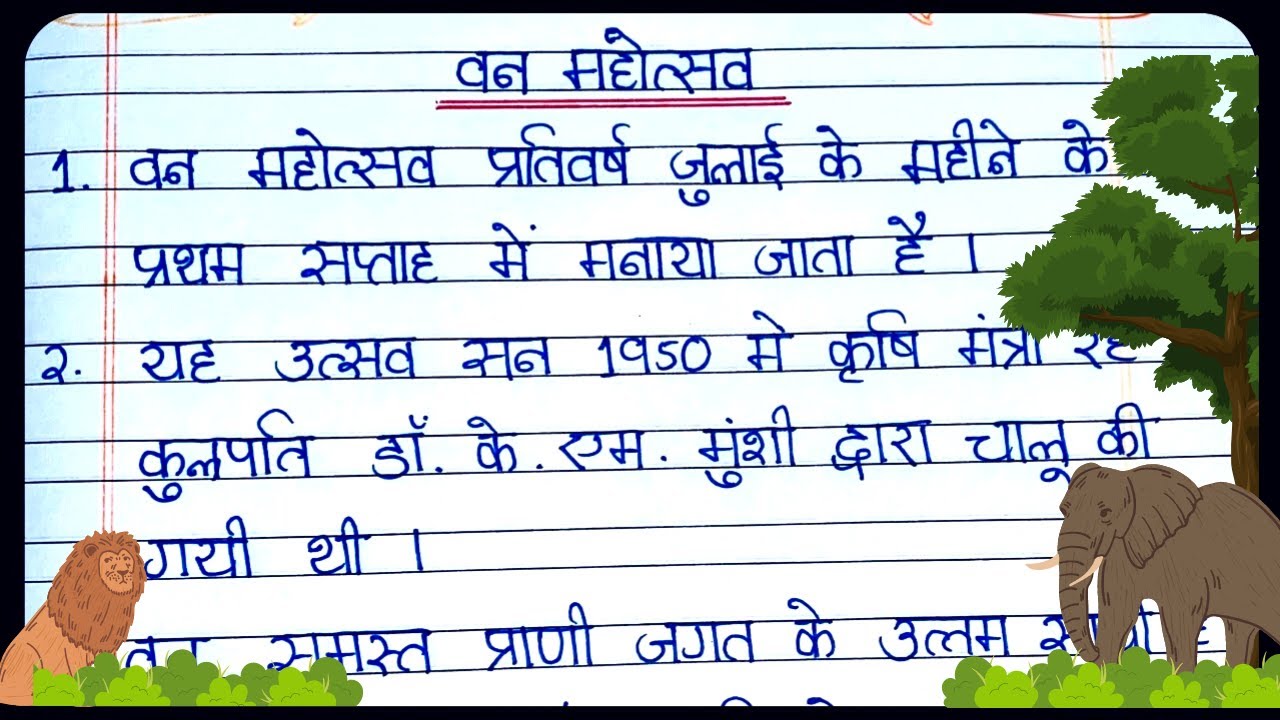 वन महोत्सव
1. वन महोत्सव प्रतिवर्ष जुलाई के महीने के
प्रथम सप्ताह में मनाया जाता है ।
२. यह उत्सव सन १९५० मे कृषि मंत्री रहे
कुलपति डॉ. के. एम. मुंशी द्वारा चालू की
गयी थी ।
समस्त प्राणी जगत के उत्तम